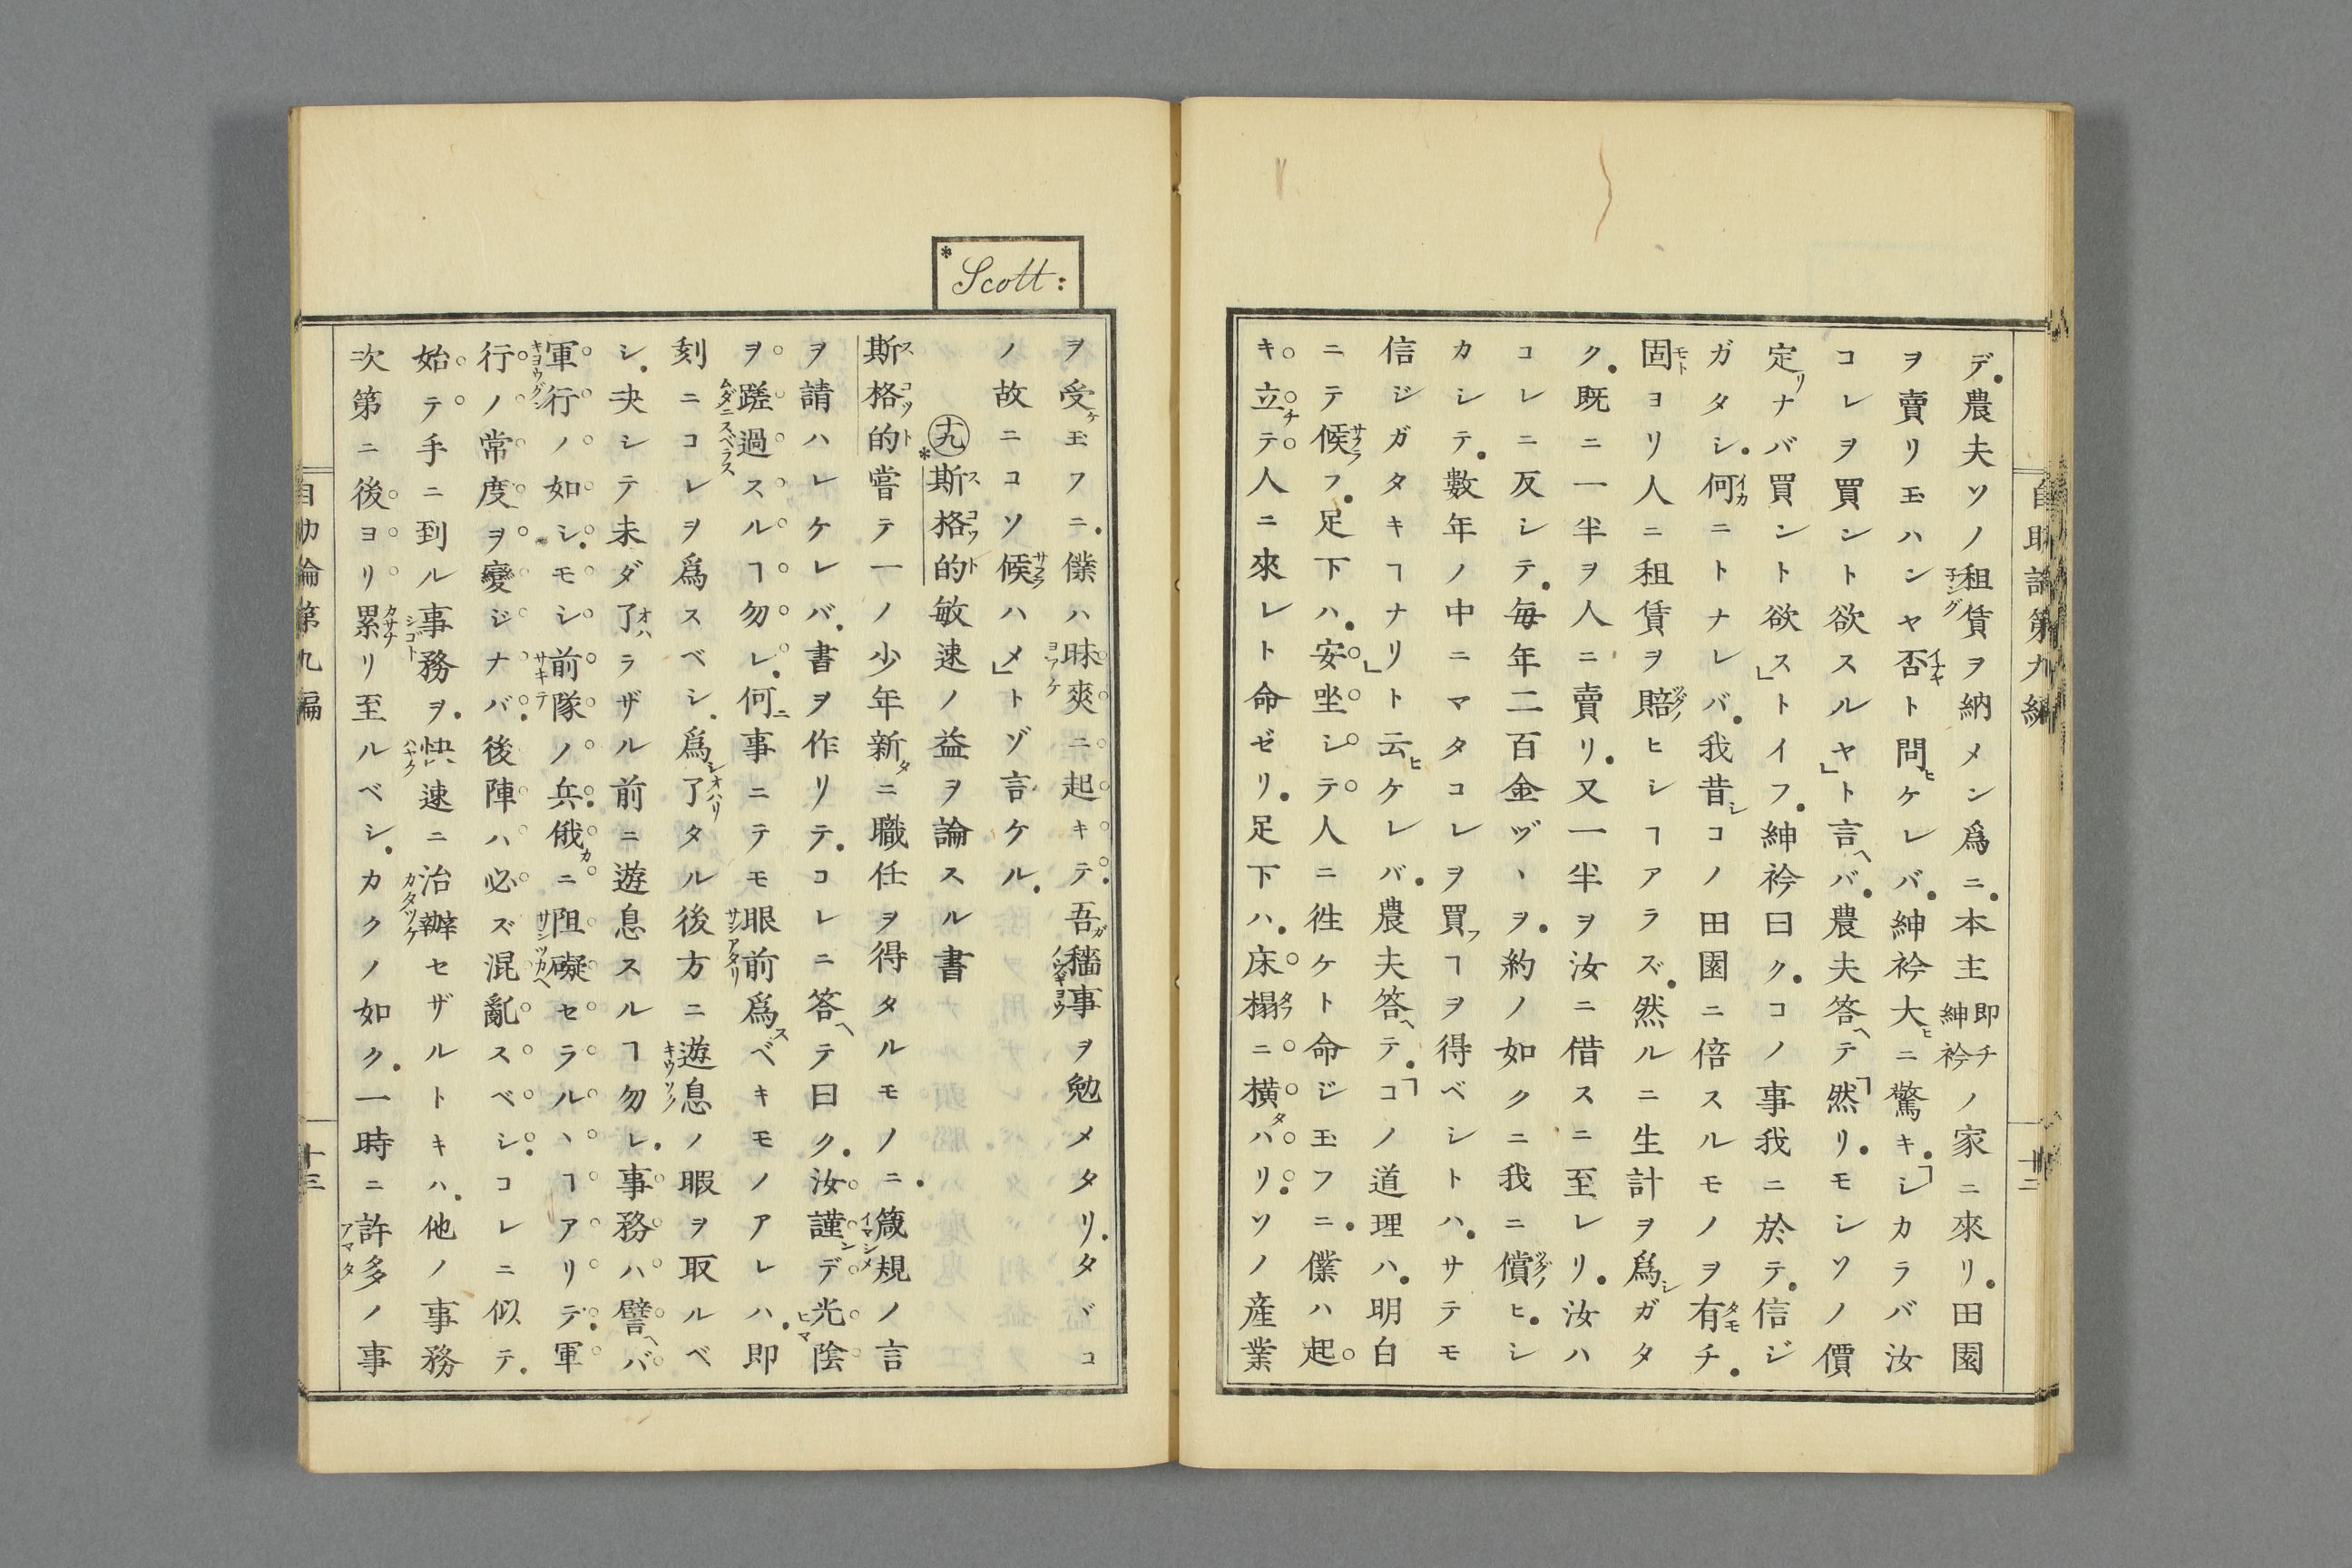 デ農夫ソノ租賃ヲ納メン爲ニ本主即チ紳衿ノ家ニ來リ田園
ヲ賣リ玉ハンヤ否ト問ヒケレバ紳衿大ヒニ驚キ「シカラバ汝
コレヲ買ント欲スルヤ」ト言ヘバ農夫答ヘテ「然リモシソノ價
定リナバ買ント欲ス」トイフ紳衿曰クコノ事我ニ於テ信ジ
ガタシ何ニトナレバ我昔シコノ田園ニ倍スルモノヲ有チ
固ヨリ人ニ租賃ヲ賠ヒシヿアラズ然ルニ生計ヲ爲シガタ
ク既ニ一半ヲ人ニ賣リ又一半ヲ汝ニ借スニ至レリ汝ハ
コレニ反シテ毎年二百金ヅヽヲ約ノ如クニ我ニ償ヒシ
カシテ數年ノ中ニマタコレヲ買フヿヲ得ベシトハサテモ
信ジガタキヿナリ」ト云ヒケレバ農夫答ヘテ「コノ道理ハ明白
ニテ候フ足下ハ安坐シテ人ニ徃ケト命ジ玉フニ僕ハ起
キ立チテ人ニ來レト命ゼリ足下ハ床榻ニ横タハリソノ産業
自助論第九編
十二
Scott:
ヲ受ケ玉フニ僕ハ昧爽ニ起キテ吾ガ穡事ヲ勉メタリタヾコ
ノ故ニコソ候ハメ」トゾ言ケル
十九 *斯格的敏速ノ益ヲ論スル書
斯格的嘗テ一ノ少年新タニ職任ヲ得タルモノニ箴規ノ言
ヲ請ハレケレバ書ヲ作リテコレニ答ヘテ曰ク汝謹ンデ光陰
ヲ蹉過スルヿ勿レ何事ニテモ眼前爲スベキモノアレハ即
刻ニコレヲ爲スベシ爲シ了リタル後方ニ遊息ノ暇ヲ取ルベ
シ决シテ未ダ了ラザル前ニ遊息スルヿ勿レ事務ハ譬ヘバ
軍行ノ如シモシ前隊ノ兵俄カニ阻礙セラルヽヿアリテ軍
行ノ常度ヲ變ジナバ後陣ハ必ズ混亂スベシコレニ似テ
始テ手ニ到ル事務ヲ快速ニ治辦セザルトキハ他ノ事務
次第ニ後ヨリ累リ至ルベシカクノ如ク一時ニ許多ノ事
自助論第九編
十三